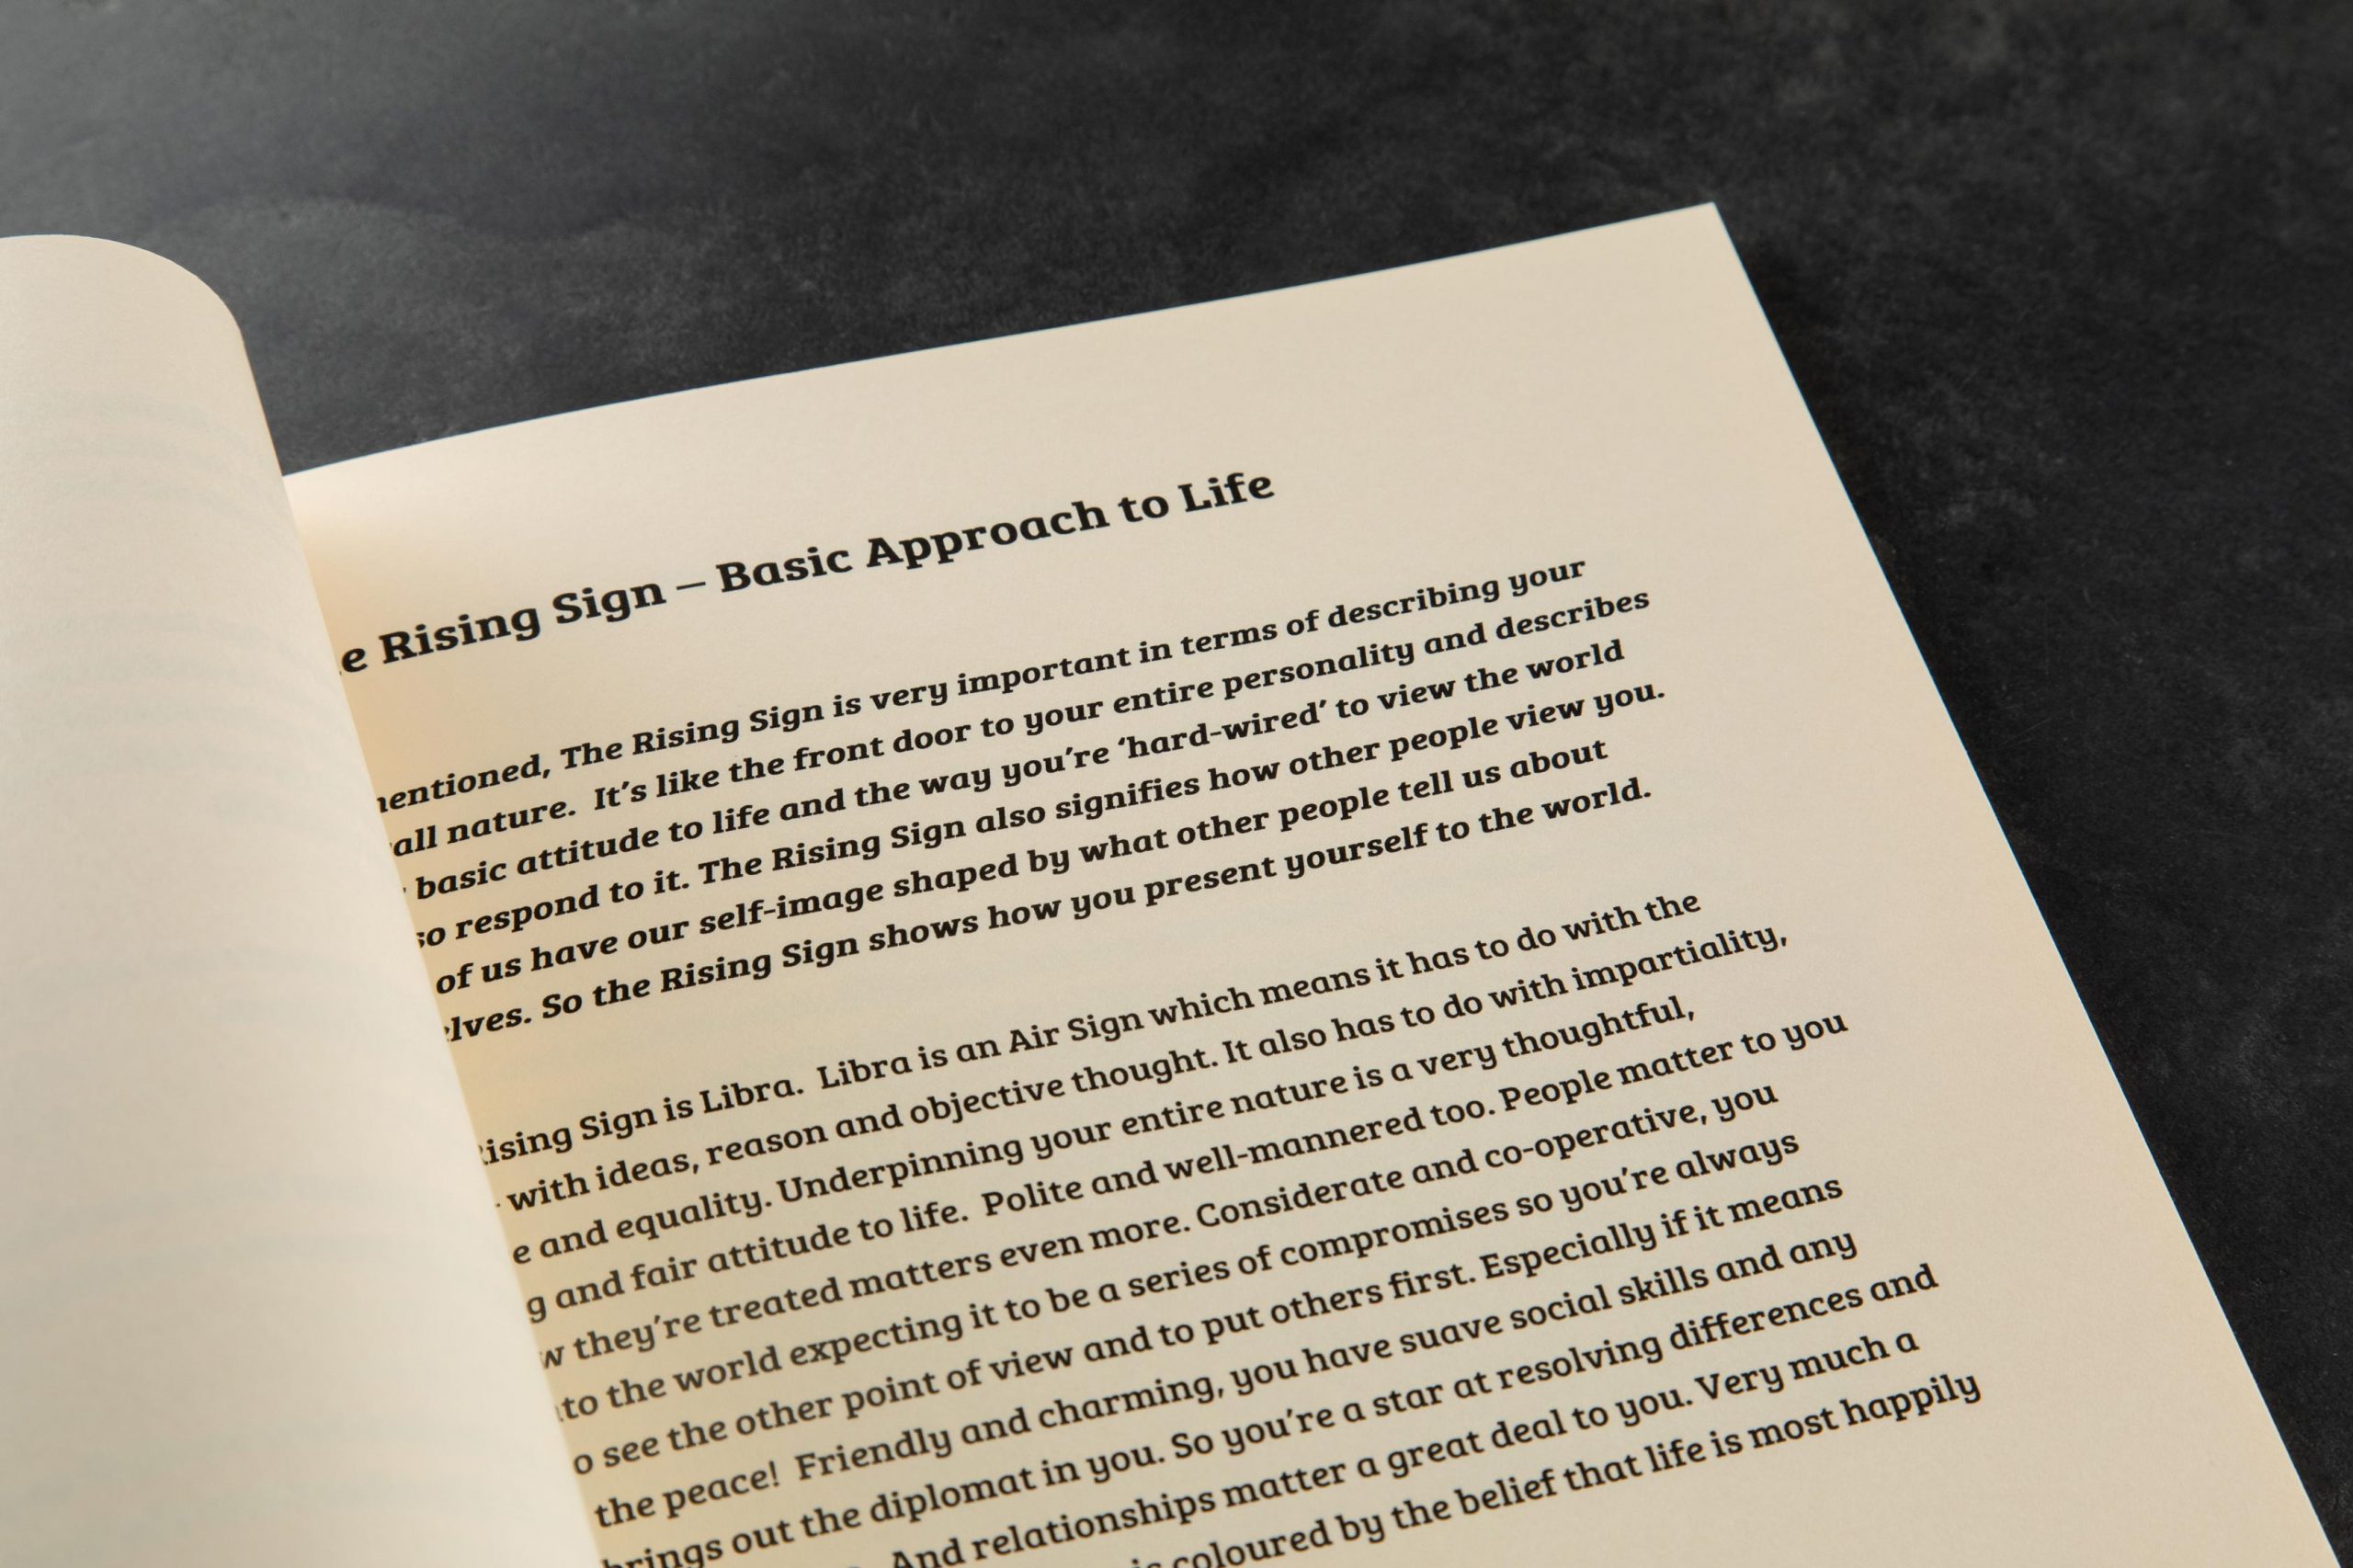 Rising Sign – Basic Approach to Life
The Rising Sign is very important in terms of describing your
nature. It's like the front door to your entire personality and describes
basic attitude to life and the way you're ‘hard-wired’ to view the world
respond to it. The Rising Sign also signifies how other people view you.
of us have our self-image shaped by what other people tell us about
So the Rising Sign shows how you present yourself to the world.
Sign is Libra. Libra is an Air Sign which means it has to do with the
with ideas, reason and objective thought. It also has to do with impartiality,
and equality. Underpinning your entire nature is a very thoughtful,
and fair attitude to life. Polite and well-mannered too. People matter to you
they're treated matters even more. Considerate and co-operative, you
to the world expecting it to be a series of compromises so you're always
see the other point of view and to put others first. Especially if it means
the peace! Friendly and charming, you have suave social skills and any
brings out the diplomat in you. So you're a star at resolving differences and
And relationships matter a great deal to you. Very much a
is coloured by the belief that life is most happily